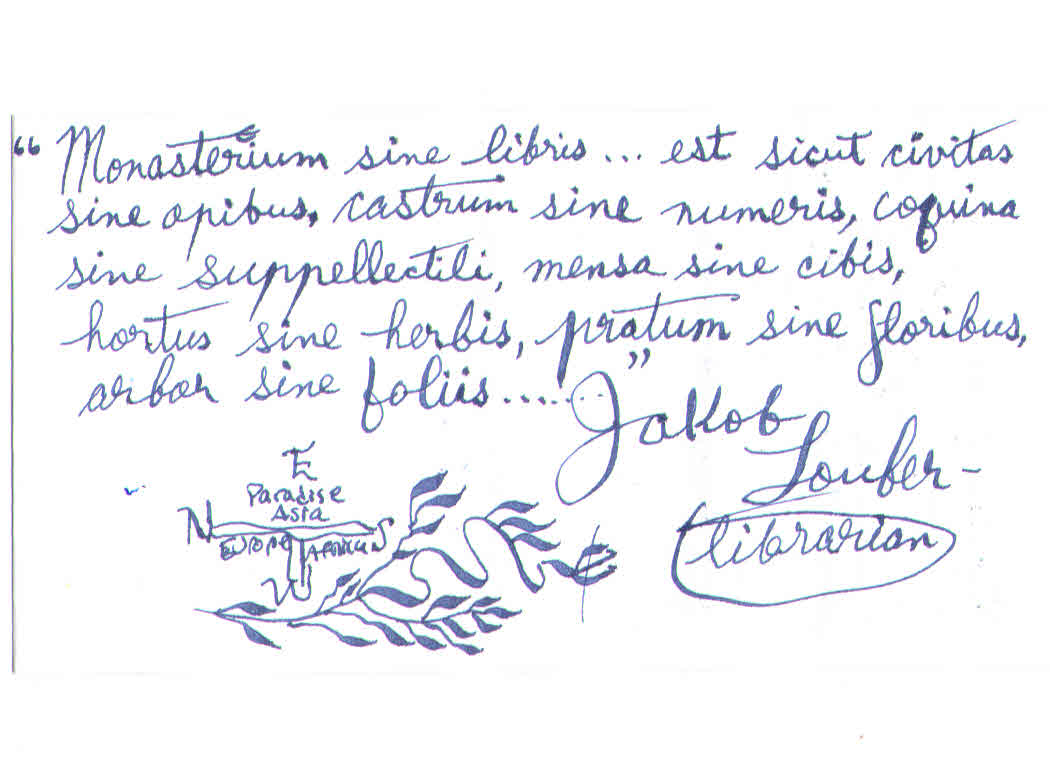 “Monasterium sine libris... est sicut civitas
sine opibus, castrum sine numeris, coquina
sine suppellectili, mensa sine cibis,
hortus sine herbis, pratum sine floribus,
arbor sine foliis......”
Jakob
Loufer-
librarian
E
Paradise
Asia
N S
EUROPE AFRICA
W